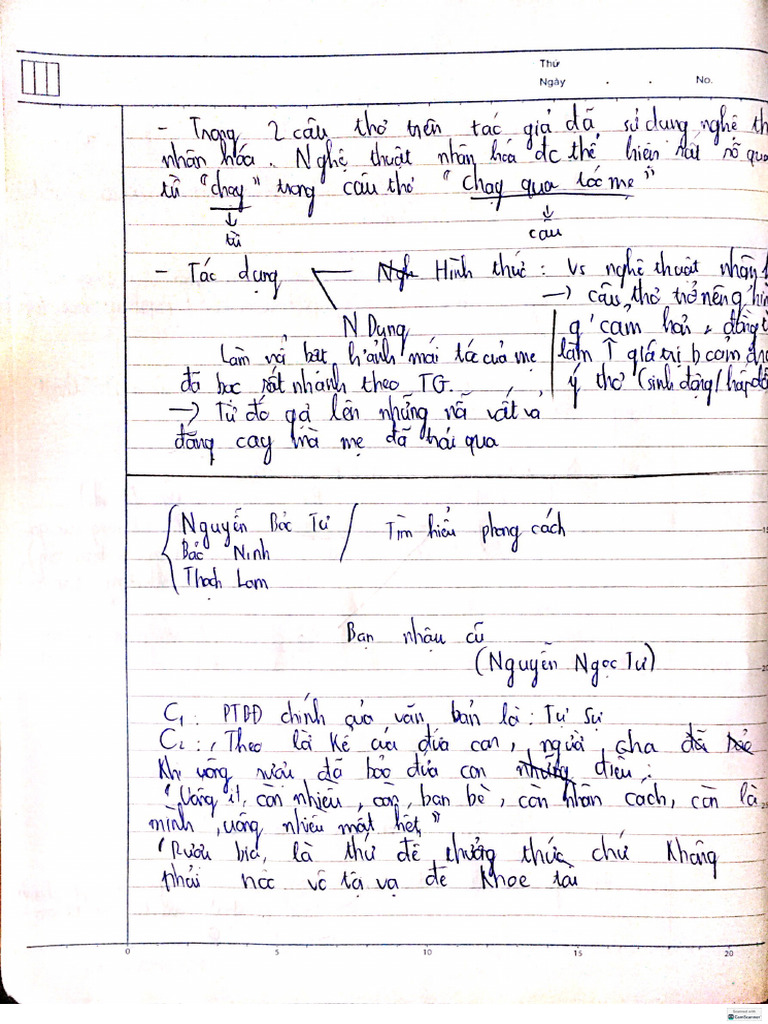 Thứ
Ngày . . No.
- Trong 2 câu thơ trên tác giả đã sử dụng nghệ th
nhân hóa. Nghệ thuật nhân hóa đc thể hiện rất rõ qua
từ "chạy" trong câu thơ "Chạy qua tóc mẹ"
từ câu
- Tác dụng Hình thức : Vs nghệ thuật nhân h
→ câu thơ trở nên g' hìn
N Dung g' cảm hơn,
Làm nổi bật h'ảnh mái tóc của mẹ làm ↑ giá trị b'cảm
đã bạc rất nhanh theo TG. ý thơ (sinh động/hấp dẫ
→ Từ đó gợi lên những nỗi vất vả
đắng cay mà mẹ đã trải qua
Nguyễn Bắc Tư / Tìm hiểu phong cách
Bảo Ninh
Thạch Lam
Bạn nhậu cũ
(Nguyễn Ngọc Tư)
C1: PTBĐ chính của văn bản là: Tự sự
C2: Theo lời kể của đứa con, người cha
khi uống rượu đã bảo đứa con những điều:
"Uống ít, còn nhiều, còn bạn bè, còn nhân cách, còn là
mình, uống nhiều mất hết"
"Rượu bia, là thứ để thưởng thức chứ không
phải nốc vô tội vạ để khoe tài
0 5 10 15 20
Scanned with
CamScanner